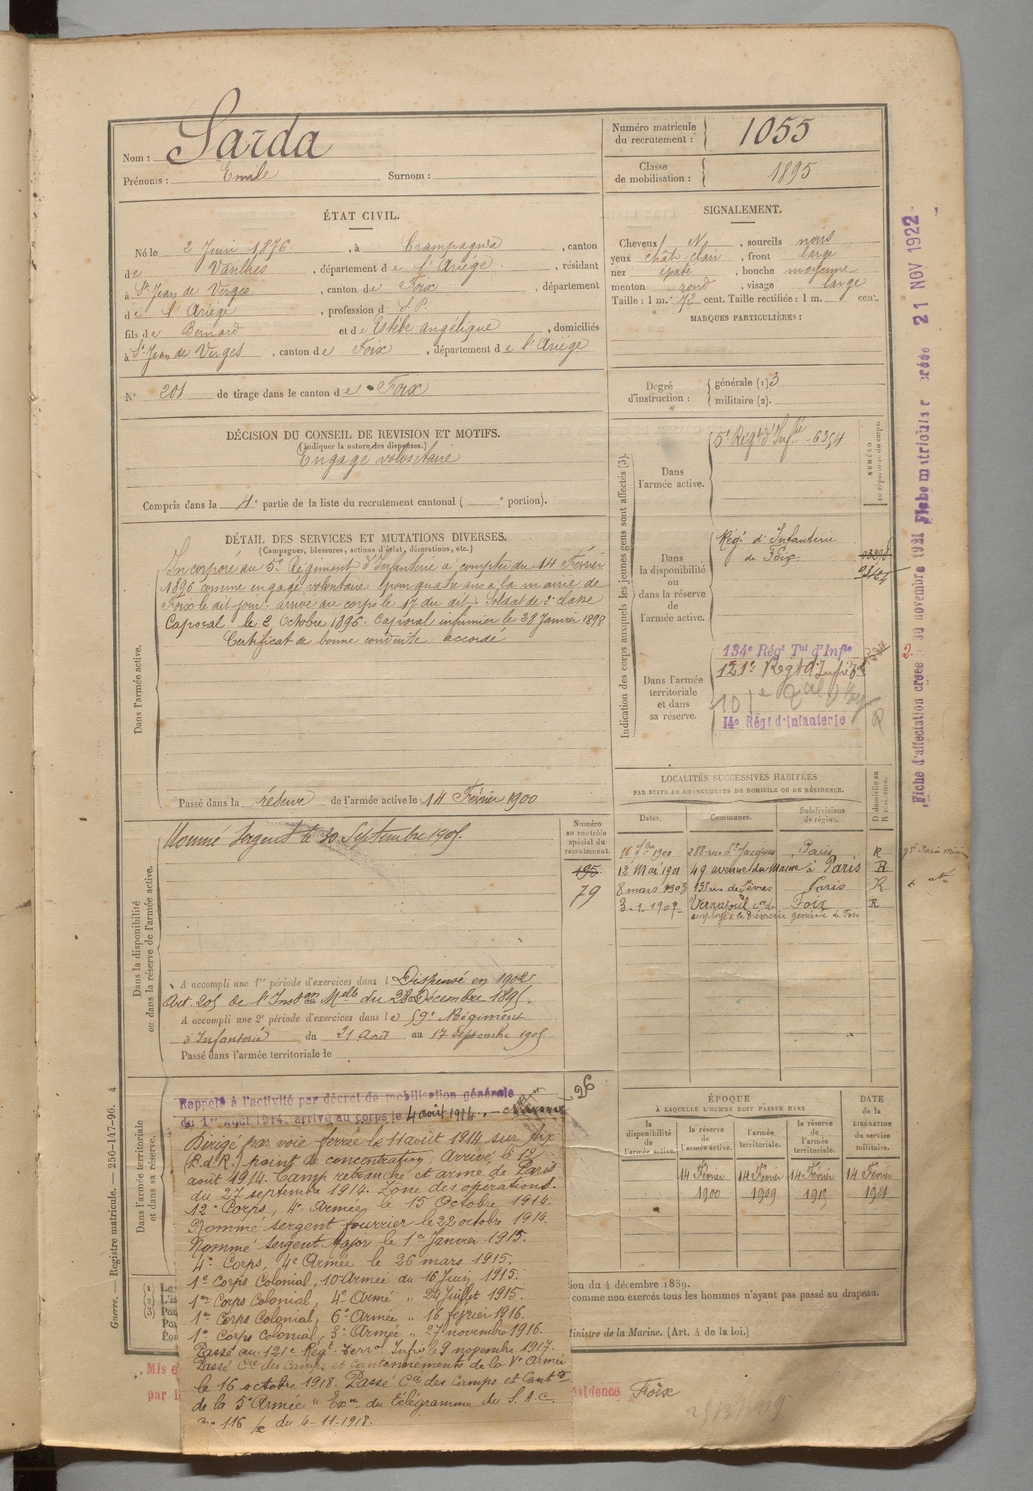 Nom : Sarda
Prénoms : Emile Surnom :
Numéro matricule
du recrutement : 1055
Classe
de mobilisation : 1895
ÉTAT CIVIL.
Né le 2 Juin 1876, à Crampagna, canton
de Varilhes, département de l'Ariège, résidant
à St Jean de Verges, canton de Foix, département
de l'Ariège, profession d S.P.
fils de Bernard et de Estèbe angélique, domiciliés
à St Jean de Verges, canton de Foix, département de l'Ariège
N° 201 de tirage dans le canton de Foix
SIGNALEMENT.
Cheveux N, sourcils noirs
yeux chât clair, front large
nez épaté, bouche moyenne
menton rond, visage large
Taille : 1 m. 72 cent. Taille rectifiée : 1 m. cent.
MARQUES PARTICULIÈRES :
Degré
d'instruction :
générale (1) 3
militaire (2).
DÉCISION DU CONSEIL DE REVISION ET MOTIFS.
(Indiquer la nature des dispenses.)
Engagé volontaire
Compris dans la 4e partie de la liste du recrutement cantonal ( e portion).
DÉTAIL DES SERVICES ET MUTATIONS DIVERSES.
(Campagnes, blessures, actions d'éclat, décorations, etc.)
Dans l'armée active.
Incorporé au 5e Régiment d'Infanterie à compter du 14 Février
1896 comme engagé volontaire pour quatre ans à la mairie de
Foix le dit jour arrivé au corps le 17 du dit. Soldat de 2e classe
Caporal le 2 Octobre 1896. Caporal infirmier le 28 Janvier 1898
Certificat de bonne conduite accordé
Passé dans la réserve de l'armée active le 14 Février 1900
Indication des corps auxquels les jeunes gens sont affectés (3).
NUMÉRO
au répertoire du corps.
Dans
l'armée active.
5e Régt d'Infie 6354
Dans
la disponibilité
ou
dans la réserve
de
l'armée active.
Régt d'Infanterie
de Foix.
Dans l'armée
territoriale
et dans
sa réserve.
134e Régt Tal d'Infie
121e Regt d'Infie
14e Régt d'Infanterie
LOCALITÉS SUCCESSIVES HABITÉES
PAR SUITE DE CHANGEMENTS DE DOMICILE OU DE RÉSIDENCE.
Dates. Communes. Subdivisions
de région. D domicile ou
R résidence.
18 7bre 1900 288 rue St Jacques Paris R
12 Mai 1901 49 avenue du Maine à Paris R
8 mars 1903 131 rue de Sèvres Paris R
3-1-1907 Vernajoul con de Foix R
employé à la Trésorerie générale de Foix
Dans la disponibilité
ou dans la réserve de l'armée active.
Nommé Sergent le 30 Septembre 1905.
Numéro
au contrôle
spécial du
recrutement.
195
79
A accompli une 1re période d'exercices dans l Dispensé en 1902
Art. 205 de l'Inston Melle du 28 Décembre 1895.
A accompli une 2e période d'exercices dans le 59e Régiment
d'Infanterie du 21 Août au 17 Septembre 1905
Passé dans l'armée territoriale le
Dans l'armée territoriale
et dans sa réserve.
Rappelé à l'activité par décret de mobilisation générale
du 1er août 1914, arrivé au corps le 4 août 1914.
26
Dirigé par voie ferrée le 11 août 1914 sur Aix
(B.d.R.) point de concentration, Arrivé le 12
août 1914. Camp retranché et armé de Paris
du 27 septembre 1914. Zone des opérations.
12e Corps, 4e Armée, le 15 Octobre 1914.
Nommé sergent fourrier le 22 octobre 1914.
Nommé sergent Major le 1er Janvier 1915.
4e Corps, 4e Armée le 26 mars 1915.
1er Corps Colonial, 10 Armée du 16 Juin 1915.
1er Corps Colonial, 4e Armée " 24 Juillet 1915.
1er Corps Colonial, 6e Armée " 16 février 1916.
1er Corps Colonial, 3e Armée " 27 novembre 1916.
Passé au 121e Régt Terral Infie le 9 novembre 1917.
Passé Cie des camps et cantonnements de la Ve Armée
le 16 octobre 1918. Passé Cie des Camps et Cantts
de la 5e Armée " Exon du Télégramme du S.A.C.
no 116 /x du 4-11-1918.
ÉPOQUE
À LAQUELLE L'HOMME DOIT PASSER DANS
la
disponibilité
de
l'armée active. la réserve
de
l'armée active. l'armée
territoriale. la réserve
de
l'armée
territoriale.
DATE
de la
LIBÉRATION
du service
militaire.
14 Février
1900 14 Février
1909 14 Février
1915 14 Février
1921
ion du 4 décembre 1889.
comme non exercés tous les hommes n'ayant pas passé au drapeau.
Ministre de la Marine. (Art. 4 de la loi.)
Mis e
par l
sidence Foix
25/3/1919
Guerre. — Registre matricule. — 256-147-96. 4
Fiche d'affectation créée 30 novembre 1921 Fiche matricule créée 21 NOV 1922